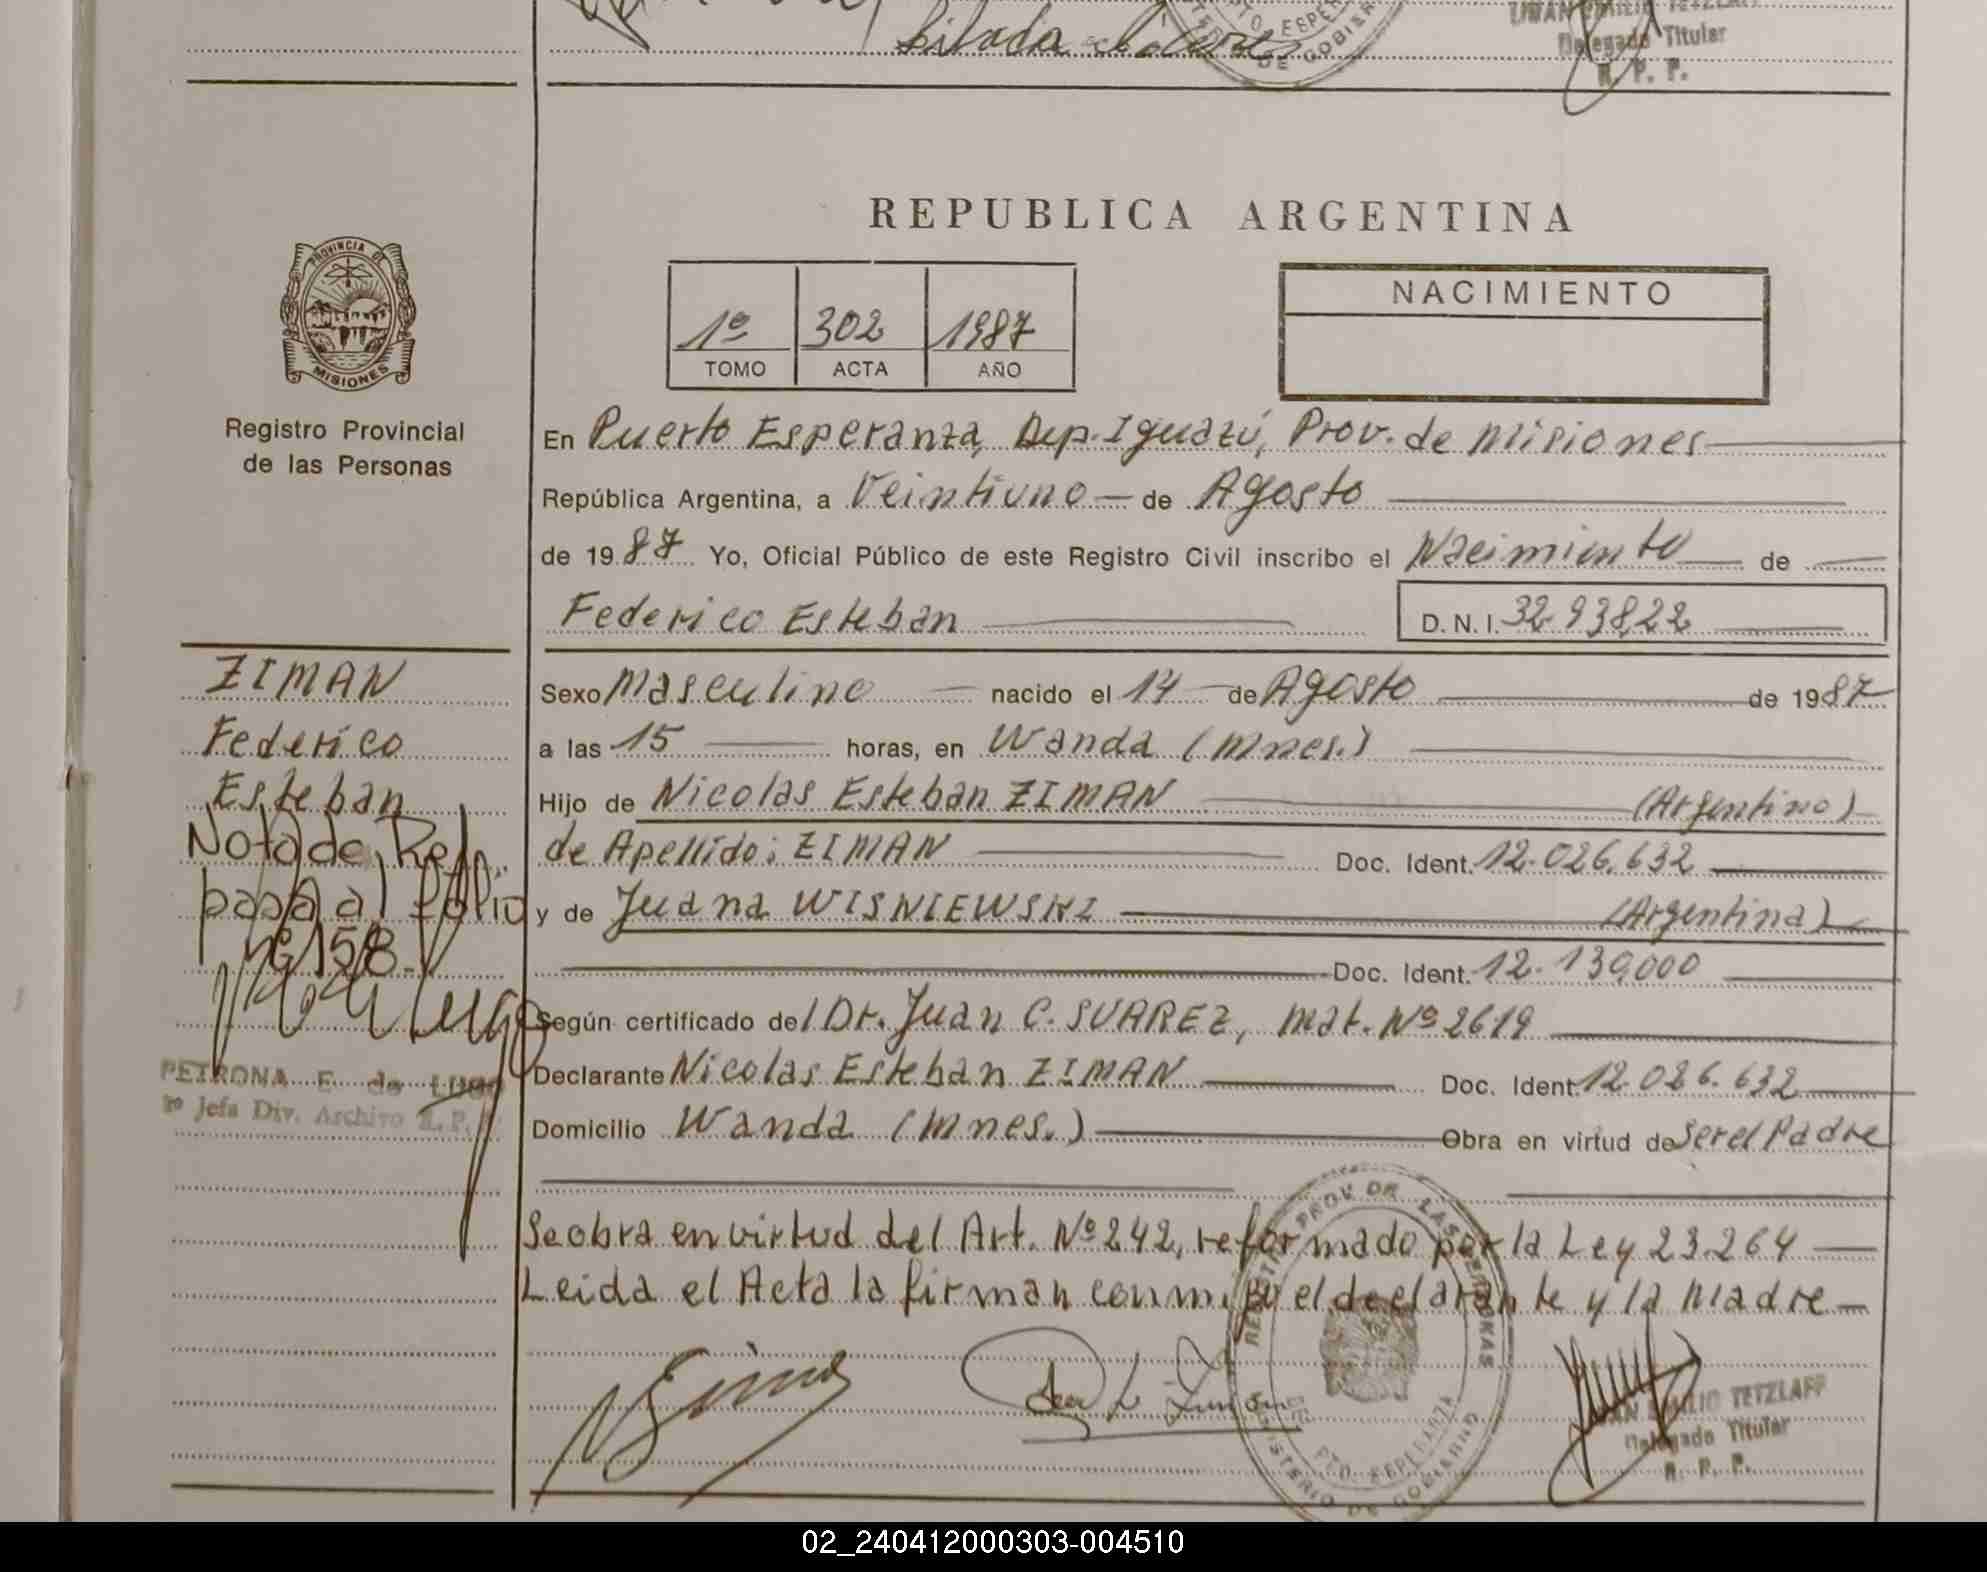 Delegado Titular
R. P. P.
REPUBLICA ARGENTINA
PROVINCIA DE
MISIONES
Registro Provincial
de las Personas
1º 302 1987
TOMO ACTA AÑO
NACIMIENTO
En Puerto Esperanza, Dep. Iguazú, Prov. de Misiones
República Argentina, a Veintiuno de Agosto
de 1987 Yo, Oficial Público de este Registro Civil inscribo el Nacimiento de
Federico Esteban D.N.I. 32.938.22
ZIMAN
Federico
Esteban
Nota de Ref.
pasa al folio
nº 158
PETRONA E. de LUGO
Jefa Div. Archivo R.P.
Sexo Masculino nacido el 14 de Agosto de 1987
a las 15 horas, en Wanda (Mnes.)
Hijo de Nicolas Esteban ZIMAN (Argentino)
de Apellido: ZIMAN Doc. Ident. 12.026.632
y de Juana WISNIEWSKI (Argentina)
Doc. Ident. 12.139.000
Según certificado del Dr. Juan C. SUAREZ, Mat. Nº 2619
Declarante Nicolas Esteban ZIMAN Doc. Ident. 12.026.632
Domicilio Wanda (Mnes.) Obra en virtud de Ser el Padre
Se obra en virtud del Art. Nº 242, reformado por la Ley 23.264
Leida el Acta la firman conmigo el declarante y la Madre
REGISTRO PROV. DE LAS PERSONAS
PTO. ESPERANZA
MINISTERIO DE GOBIERNO
EMILIO TETZLAFF
Delegado Titular
R. P. P.
02_240412000303-004510